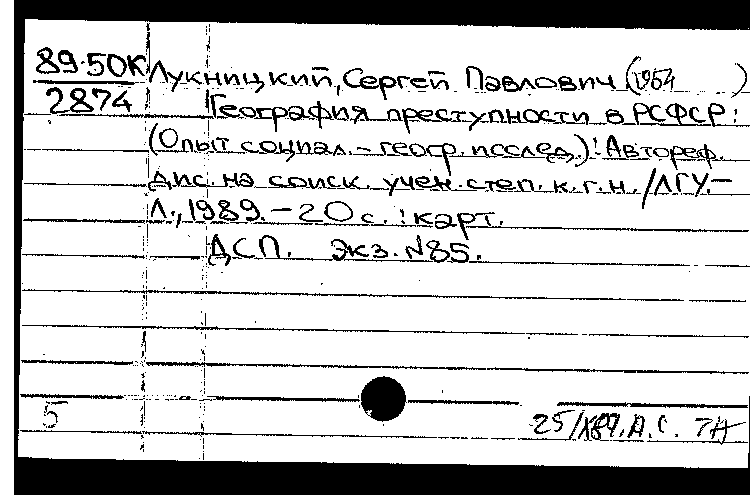 89-50К Лукницкий, Сергей Павлович (1954 )
2874 География преступности в РСФСР:
(Опыт социал.-геогр. исслед.): Автореф.
дис. на соиск. учен. степ. к. г. н. /ЛГУ.-
Л., 1989.-20 с.: карт.
ДСП. Экз. №85.
5
25/